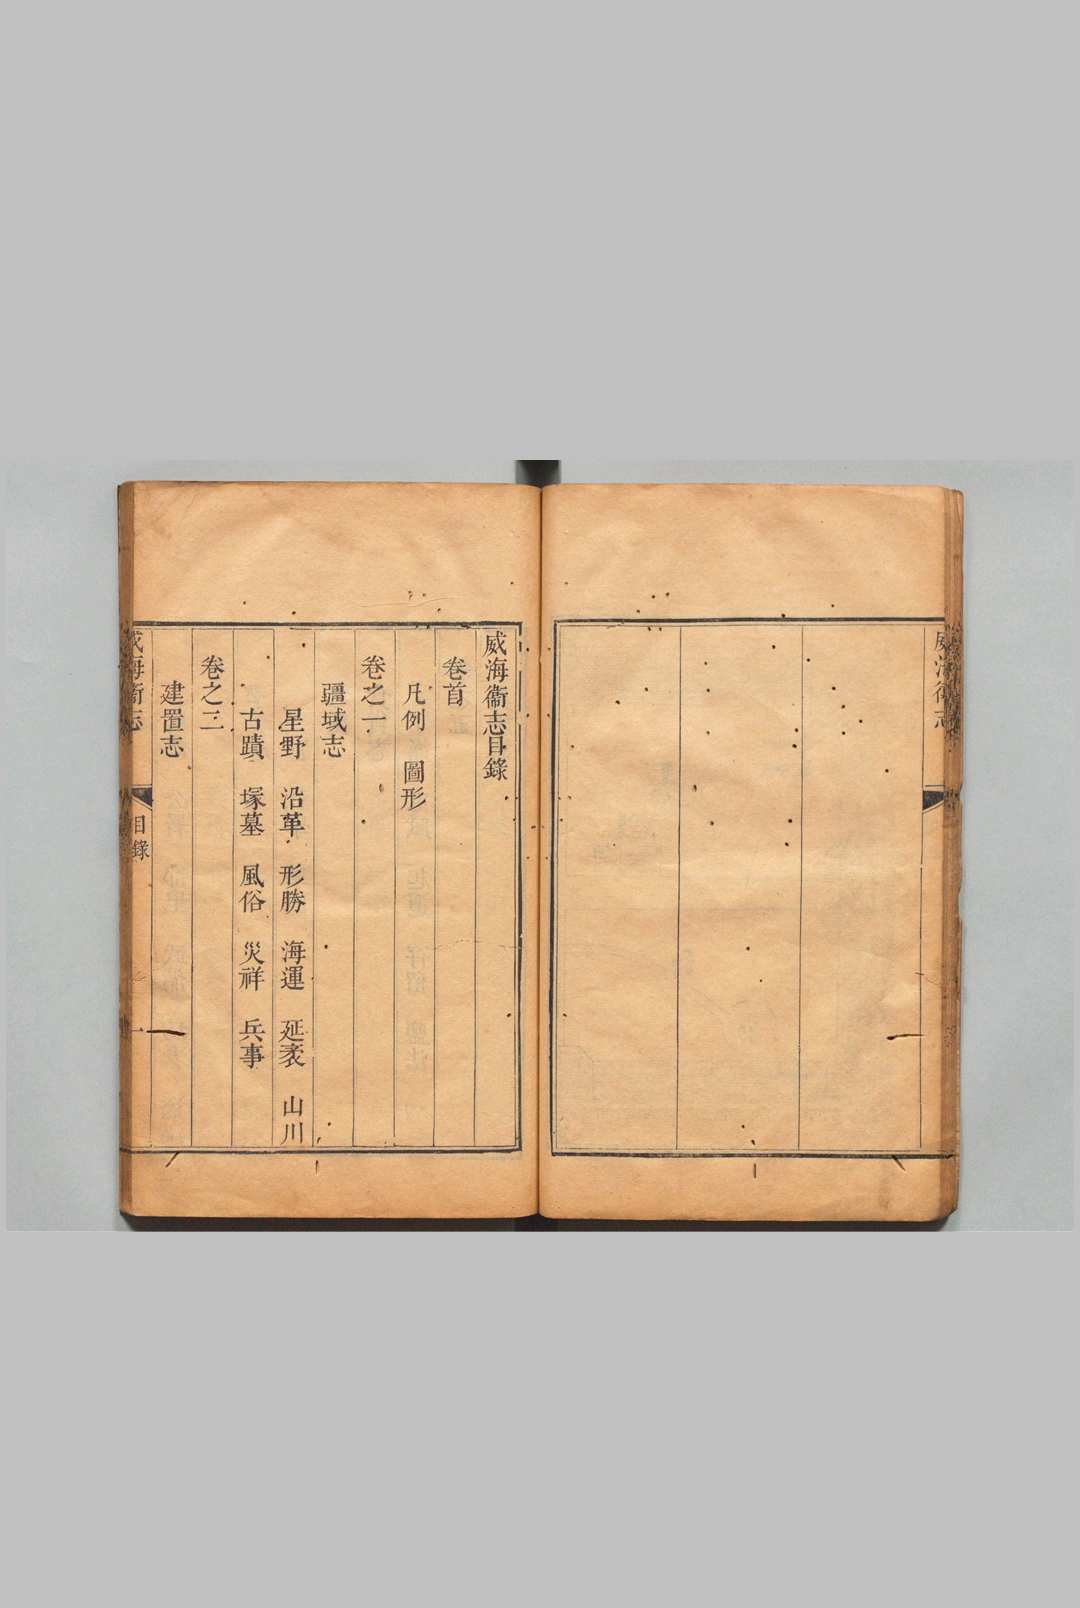 威海衞志
威海衞志目錄
卷首
凡例 圖形
卷之一
疆域志
星野 沿革 形勝 海運 延袤 山川
古蹟 塚墓 風俗 災祥 兵事
卷之二
建置志
威海衞志 目錄 一